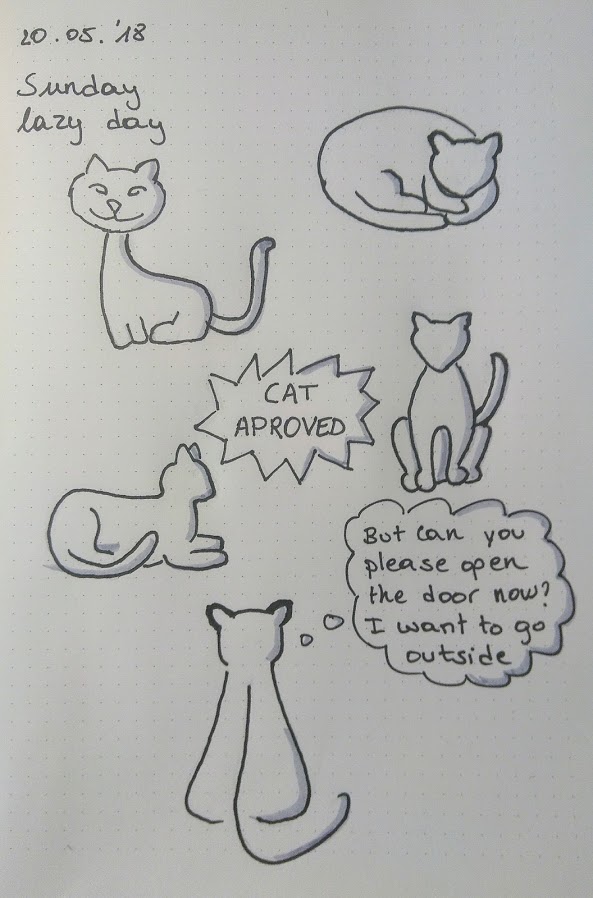 20.05.'18
Sunday
lazy day
CAT
APROVED
But can you
please open
the door now?
I want to go
outside